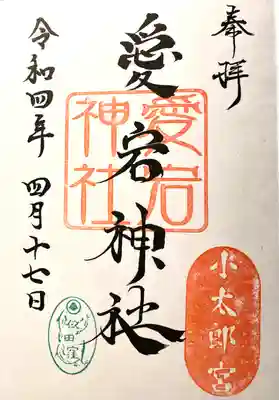 奉拝
愛宕神社
愛宕神社
小太郎宮
令和四年 四月十七日